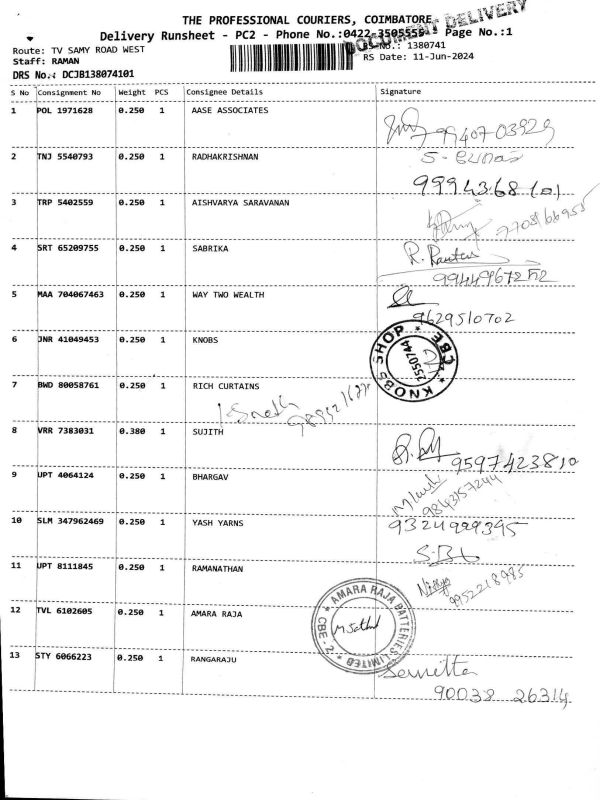 THE PROFESSIONAL COURIERS, COIMBATORE
DOCUMENT DELIVERY
Delivery Runsheet - PC2 - Phone No.:0422-3505555 Page No.:1
Route: TV SAMY ROAD WEST RS No.: 1380741
Staff: RAMAN RS Date: 11-Jun-2024
DRS No.: DCJB138074101
S No Consignment No Weight PCS Consignee Details Signature
1 POL 1971628 0.250 1 AASE ASSOCIATES
99407 03929
2 TNJ 5540793 0.250 1 RADHAKRISHNAN
3 TRP 5402559 0.250 1 AISHVARYA SARAVANAN
4 SRT 65209755 0.250 1 SABRIKA
5 MAA 704067463 0.250 1 WAY TWO WEALTH
9629510702
6 JNR 41049453 0.250 1 KNOBS
KNOBS SHOP * CBE * 2550744
7 BWD 80058761 0.250 1 RICH CURTAINS
8 VRR 7383031 0.380 1 SUJITH
9597423810
9 UPT 4064124 0.250 1 BHARGAV
9843157244
10 SLM 347962469 0.250 1 YASH YARNS
9324999395
11 UPT 8111845 0.250 1 RAMANATHAN
Nithya
9952218985
12 TVL 6102605 0.250 1 AMARA RAJA
* AMARA RAJA BATTERIES LIMITED * CBE-2
13 STY 6066223 0.250 1 RANGARAJU
90038 26314